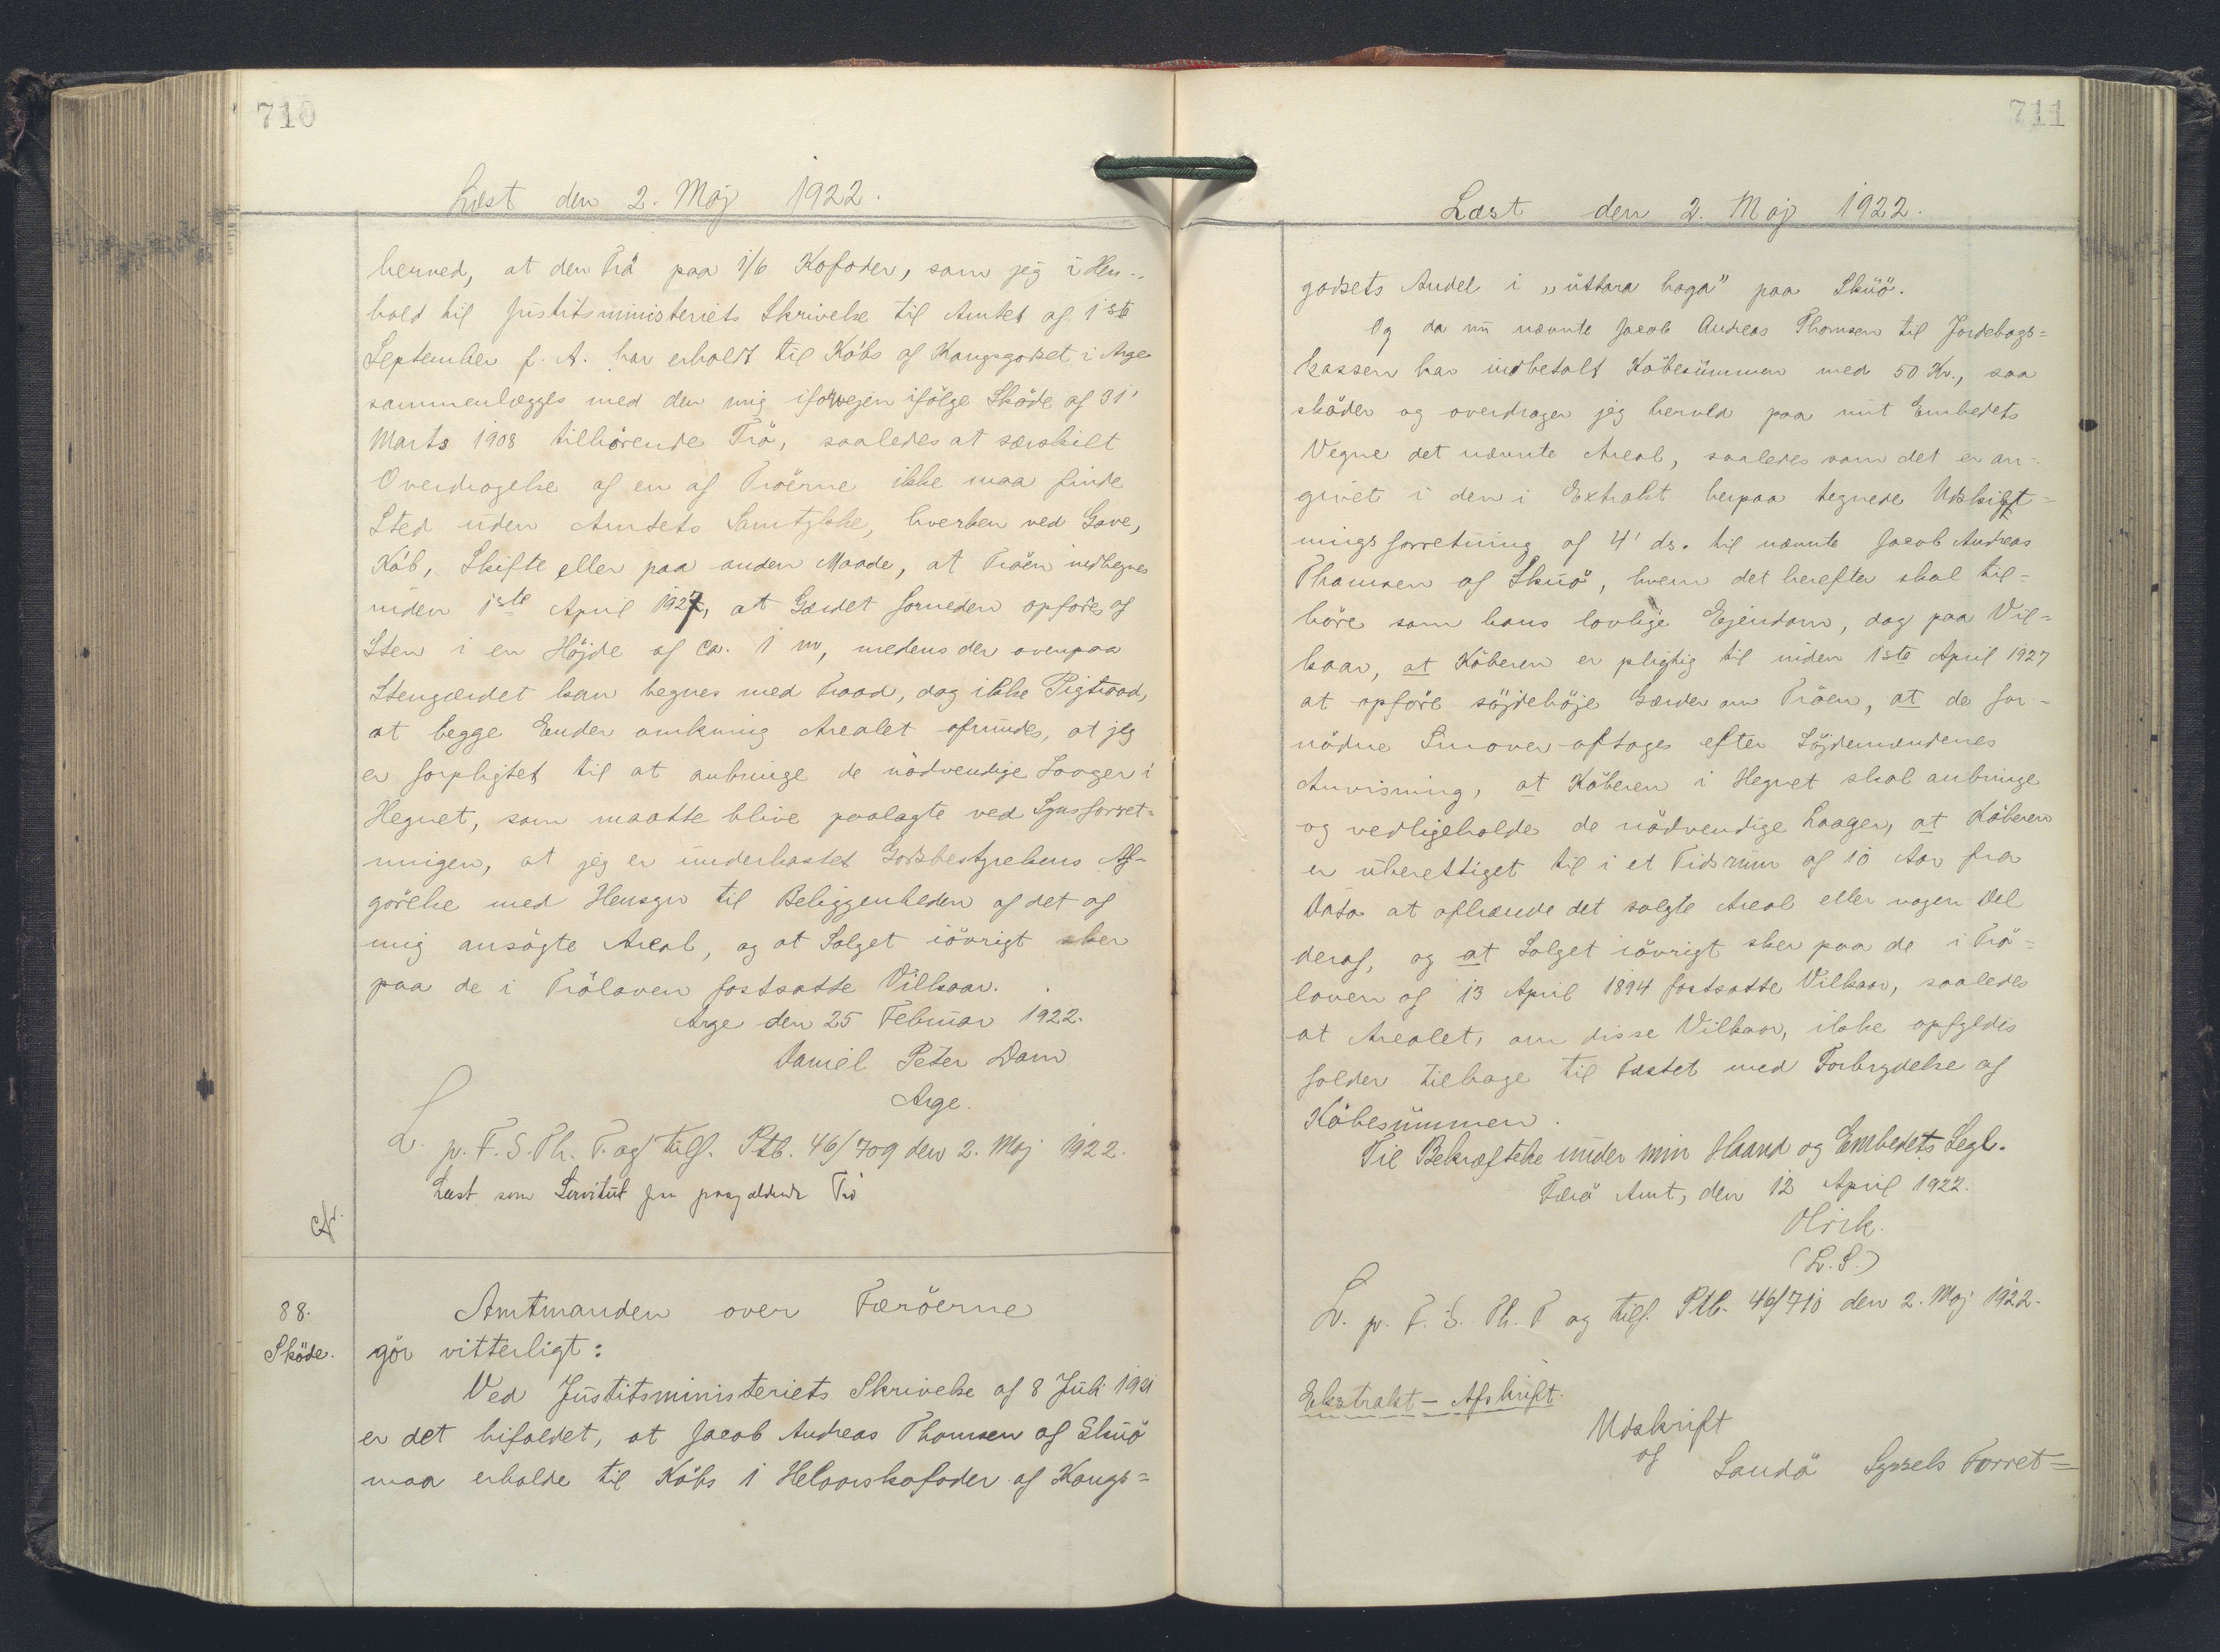 710
Læst den 2. Maj 1922.
herved, at den Trö paa 1/6 Kofoder, som jeg i Hen-
hold til Justitsministeriets Skrivelse til Amtet af 1ste
September f. A. har erholdt til Köbs af Kongsgodset i Arge
sammenlægges med den mig iforvejen ifölge Sköde af 31'
Marts 1908 tilhörende Trö, saaledes at særskilt
Overdragelse af en af Tröerne ikke maa finde
Sted uden Amtets Samtykke, hverken ved Gave,
Köb, Skifte eller paa anden Maade, at Tröen indhegnes
inden 1ste April 1927, at Gærdet forneden opföres af
Sten i en Höjde af ca. 1 m, medens der ovenpaa
Stengærdet kan hegnes med Traad, dog ikke Pigtraad,
at begge Ender omkring Arealet afrundes, at jeg
er forpligtet til at anbringe de nödvendige Laager i
Hegnet, som maatte blive paalagte ved Synsforret-
ningen, at jeg er underkastet Godsbestyrelsens Af-
görelse med Hensyn til Beliggenheden af det af
mig ansögte Areal, og at Salget iövrigt sker
paa de i Trölaven fastsatte Vilkaar.
Arge den 25 Februar 1922.
Daniel Peter Dam
Arge.
L. p. F. S. Th. T. og tilf. Ptb. 46/709 den 2. Maj 1922.
Læst som Servitut paa pragældende Trö
cfr.
88.
Sköde.
Amtmanden over Færöerne
gör vitterligt:
Ved Justitsministeriets Skrivelse af 8 Juli 1921
er det bifaldet, at Jacob Andreas Thomsen af Skuö
maa erholde til Köbs 1 Helaarskofoder af Kongs=
711
Læst den 2. Maj 1922.
godsets Andel i „úttara haga" paa Skuö.
Og da nu nævnte Jacob Andreas Thomsen til Jordebogs=
kassen har indbetalt Köbesummen med 50 Kr., saa
sköder og overdrager jeg herved paa mit Embedets
Vegne det nævnte Areal, saaledes som det er an-
givet i den i Extrakt herpaa tegnede Udskift=
nings forretning af 4' ds. til nævnte Jacob Andreas
Thomsen af Skuö, hvem det herefter skal til=
höre som hans lovlige Ejendom, dog paa Vil=
kaar, at Köberen er pligtig til inden 1ste April 1927
at opföre söjdehöje Gærder om Tröen, at de for-
nödne Smaver aftages efter Söjdemændenes
Anvisning, at Köberen i Hegnet skal anbringe
og vedligeholde de nödvendige Laager, at Köberen
er uberettiget til i et Tidsrum af 10 Aar fra
Dato at afhænde det solgte Areal eller nogen Del
deraf, og at Salget iövrigt sker paa de i Trö=
loven af 13 April 1894 fastsatte Vilkaar, saaledes
at Arealet, om disse Vilkaar, ikke opfyldes
falder tilbage til Fæstet med Forbrydelse af
Köbesummen.
Til Bekræftelse under min Haand og Embedets Segl.
Færö Amt, den 12 April 1922.
Olrik.
(L.S.)
L. p. F. S. Th. T og tilf. Ptb. 46/710 den 2. Maj 1922.
Ekstrakt - Afskrift.
Udskrift
af
Sandö Syssels Forret=